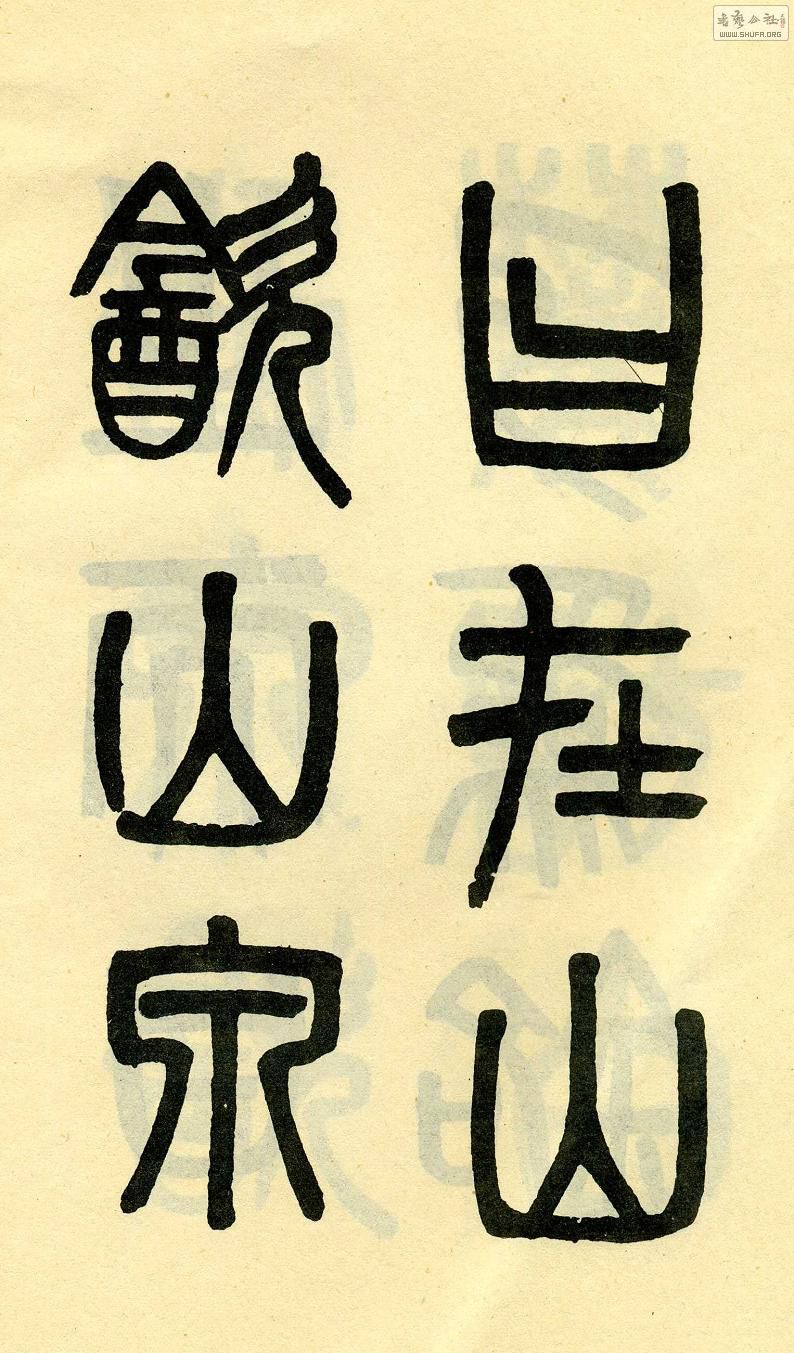 書藝公社
WWW.SHUFA.ORG
曰在山
㱃山泉